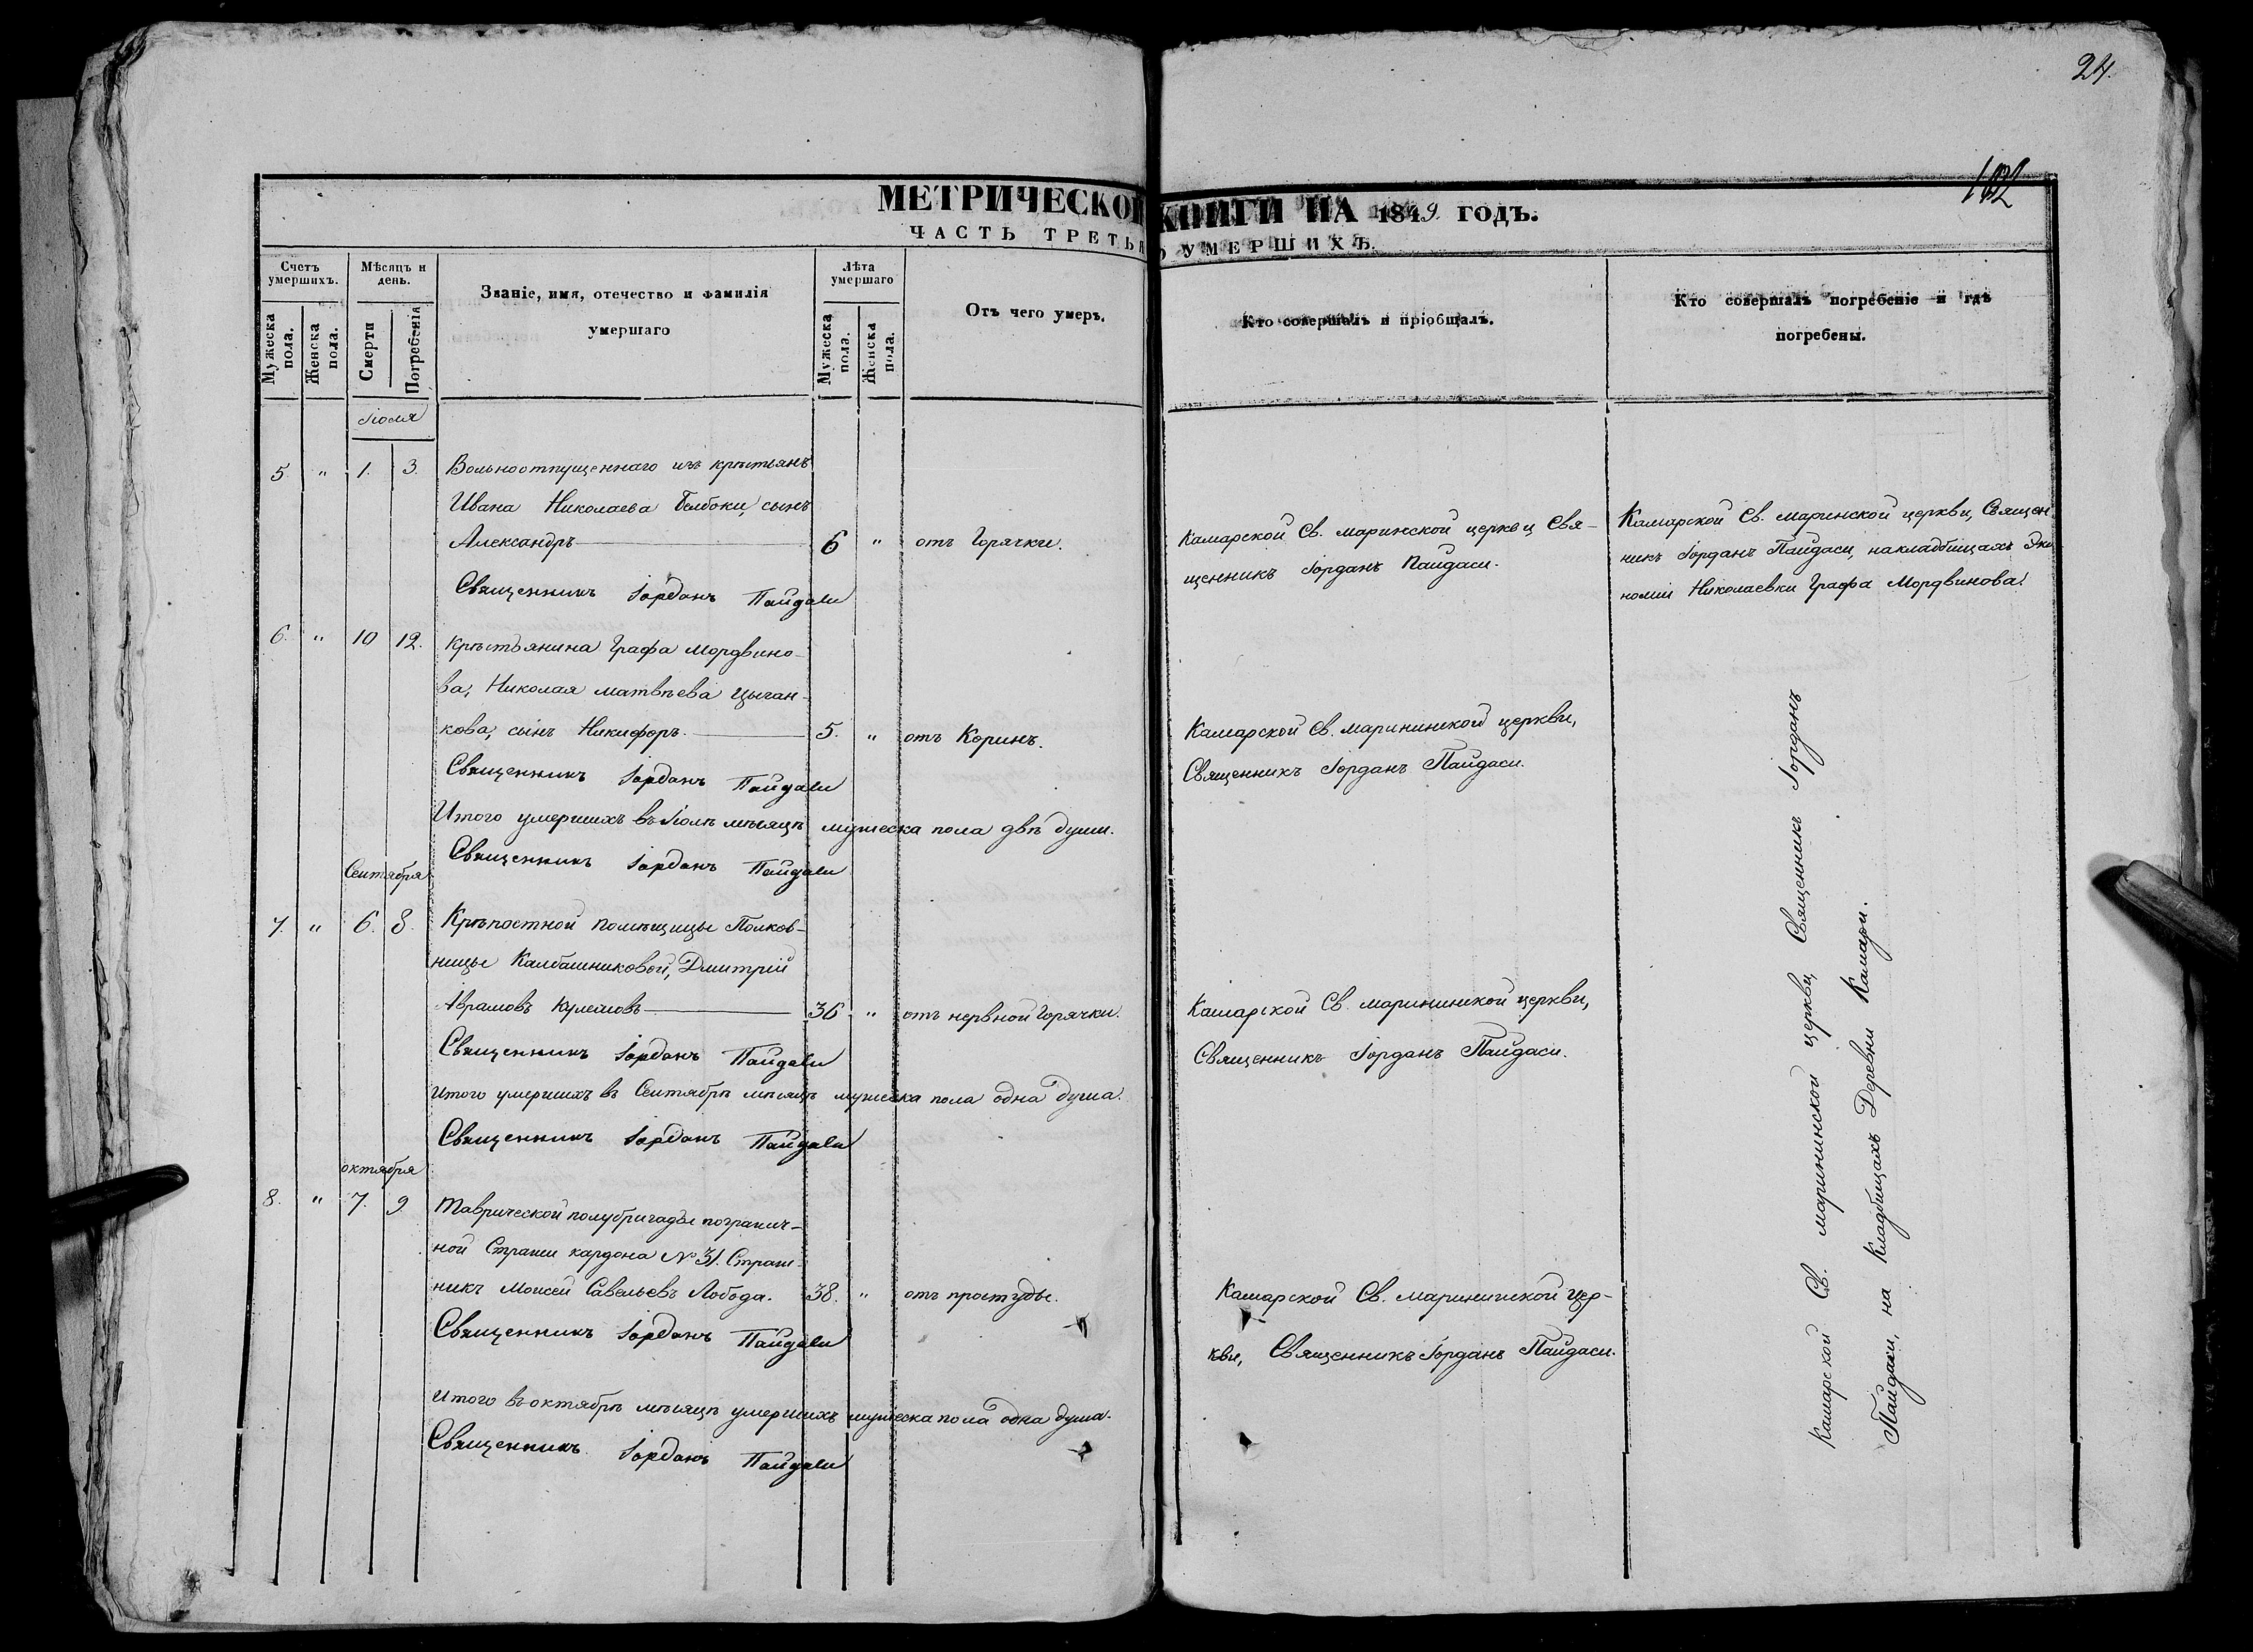 24.
102
МЕТРИЧЕСКОЙ КНИГИ НА 1849. ГОДЪ.
ЧАСТЬ ТРЕТЬЯ О УМЕРШИХЪ.
Счетъ умершихъ.
Мужеска пола.
Женска пола.
Мѣсяцъ и день.
Смерти
Погребенія
Званіе, имя, отечество и фамилія
умершаго
Лѣта умершаго
Мужеска пола.
Женска пола.
Отъ чего умеръ.
Кто совершалъ и пріобщалъ.
Кто совершалъ погребеніе и гдѣ
погребены.
Іюля
5. " 1. 3. Вольноотпущеннаго изъ крѣстьянъ
Ивана Николаева сынъ
Александръ 6 " отъ Горячки.
Священникъ Іорданъ Пайдаси
Камарской Св. маринской церкви Свя-
щенникъ Іорданъ Пайдаси.
Камарской Св. маринской церкви, Священ
никъ Іорданъ Пайдаси, накладбищахъ Эко
номіи Николаевки Графа Мордвинова.
6. " 10 12. Крѣстьянина Графа Мордвино-
ва, Николая Матвѣева Цыган-
кова, сынъ Никифоръ 5. " отъ Коринъ.
Священникъ Іорданъ Пайдаси
Камарской Св. марининской церкви,
Священникъ Іорданъ Пайдаси.
Итого умершихъ въ Іюлѣ мѣсяцѣ мужеска пола двѣ души.
Священникъ Іорданъ Пайдаси
Сентября
7. " 6. 8. Крѣпостной помѣщицы Полков-
ницы Калбашниковой, Дмитрій
Аврамовъ Кулешовъ 36 " отъ нервной Горячки.
Священникъ Іорданъ Пайдаси
Камарской Св. марининской церкви,
Священникъ Іорданъ Пайдаси.
Итого умершихъ въ Сентябрѣ мѣсяцѣ мужеска пола одна душа.
Священникъ Іорданъ Пайдаси
октября
8. " 7. 9 Таврической полубригады погранич-
ной Стражи кардона № 31. Страж-
никъ Моисей Савельевъ Лобода. 38. " отъ простуды.
Священникъ Іорданъ Пайдаси
Камарской Св. марининской цер-
кви, Священникъ Іорданъ Пайдаси.
Итого въ октябрѣ мѣсяцѣ умершихъ мужеска пола одна душа.
Священникъ Іорданъ Пайдаси
Камарской Св. марининской церкви, Священникъ Іорданъ
Пайдаси, на Кладбищахъ Деревни Камари.